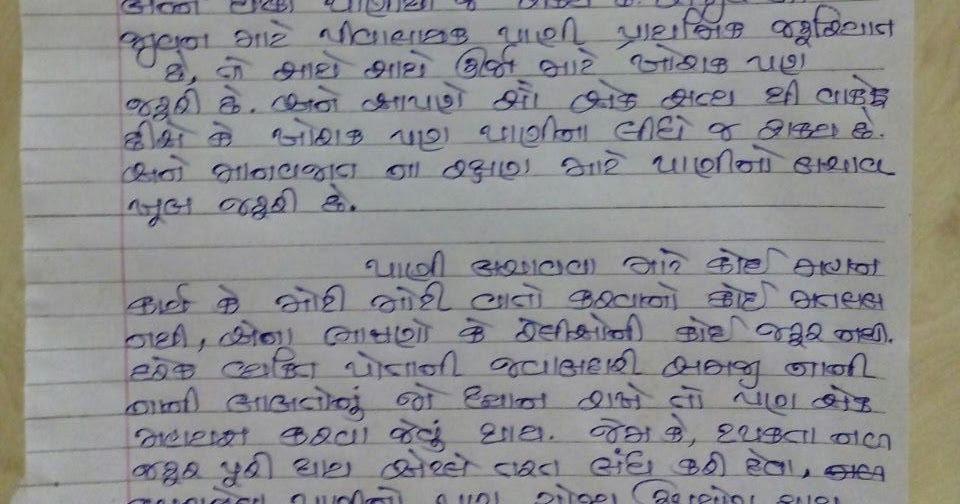 જીવન માટે પીવાલાયક પાણી પ્રાથમિક જરૂરિયાત
છે, તે સાથે સાથે ઊર્જા માટે ખોરાક પણ
જરૂરી છે. અને આપણે સૌ એક સત્ય થી વાકેફ
છીએ કે ખોરાક પણ પાણીના લીધે જ શક્ય છે.
અને માનવજાત ના રક્ષણ માટે પાણીનો બચાવ
ખૂબ જરૂરી છે.
પાણી બચાવવા માટે કોઈ મહાન
કાર્ય કે મોટી મોટી વાતો કરવાનો કોઈ મતલબ
નથી, એના ભાષણો કે રેલીઓની કોઈ જરૂર નથી.
દરેક વ્યક્તિ પોતાની જવાબદારી સમજી નાની
નાની બાબતોનું જો ધ્યાન રાખે તો પણ એક
મહાકામ કરવા જેવું થાય. જેમ કે, ટપકતા નળ
જરૂર પૂરી થાય એટલે તરત બંધ કરી દેવા,